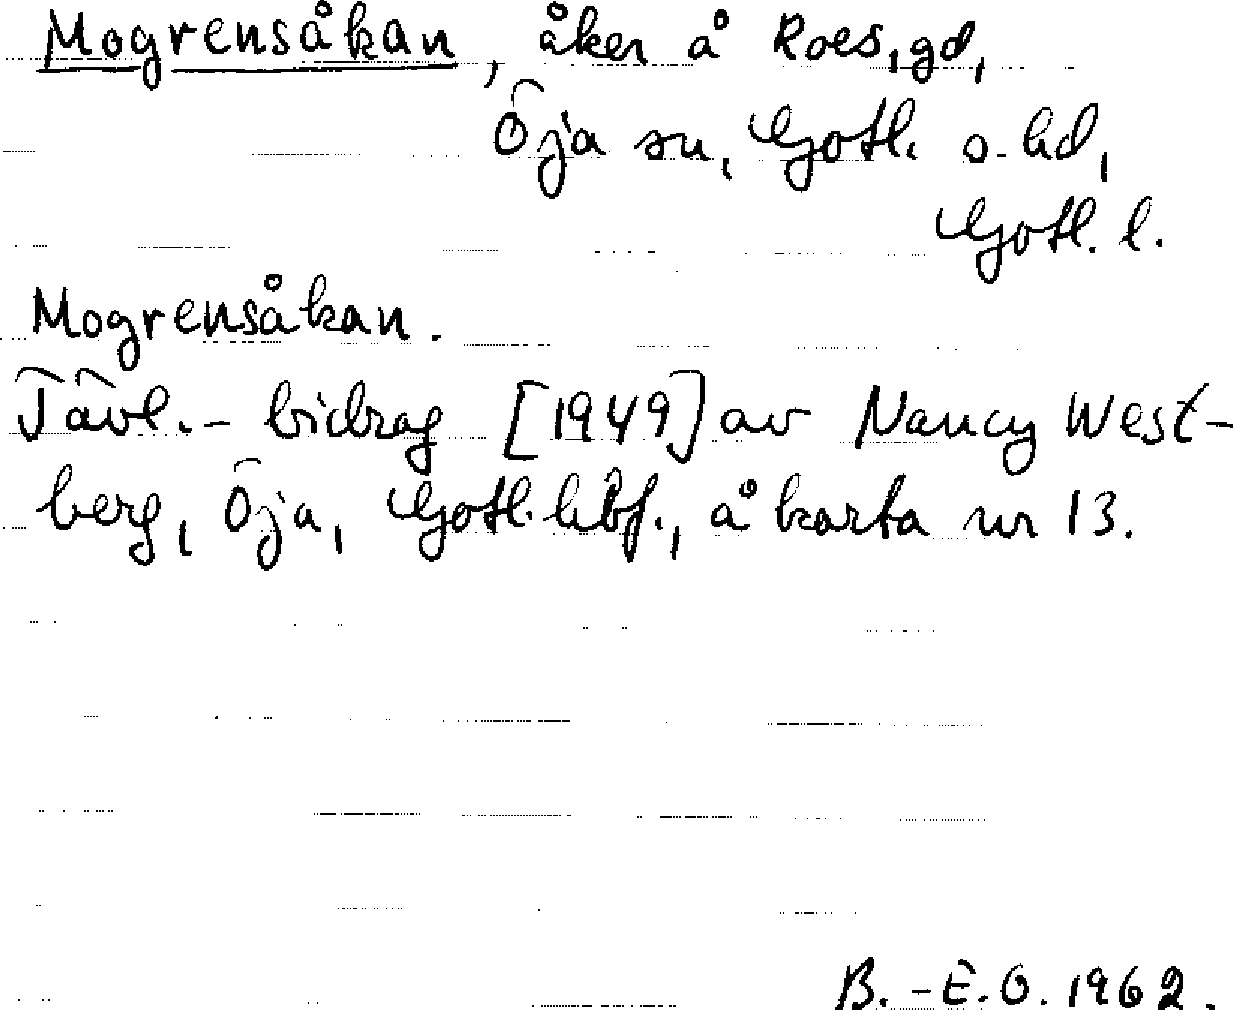 Mogrensåkan, åker å Roes, gd,
Öja sn, Gotl. s. hd,
Gotl. l.
Mogrensåkan.
Tävl.- bidrag [1949] av Nancy West-
berg, Öja, Gotl. hbf., å karta nr 13.
B.-E.O. 1962.